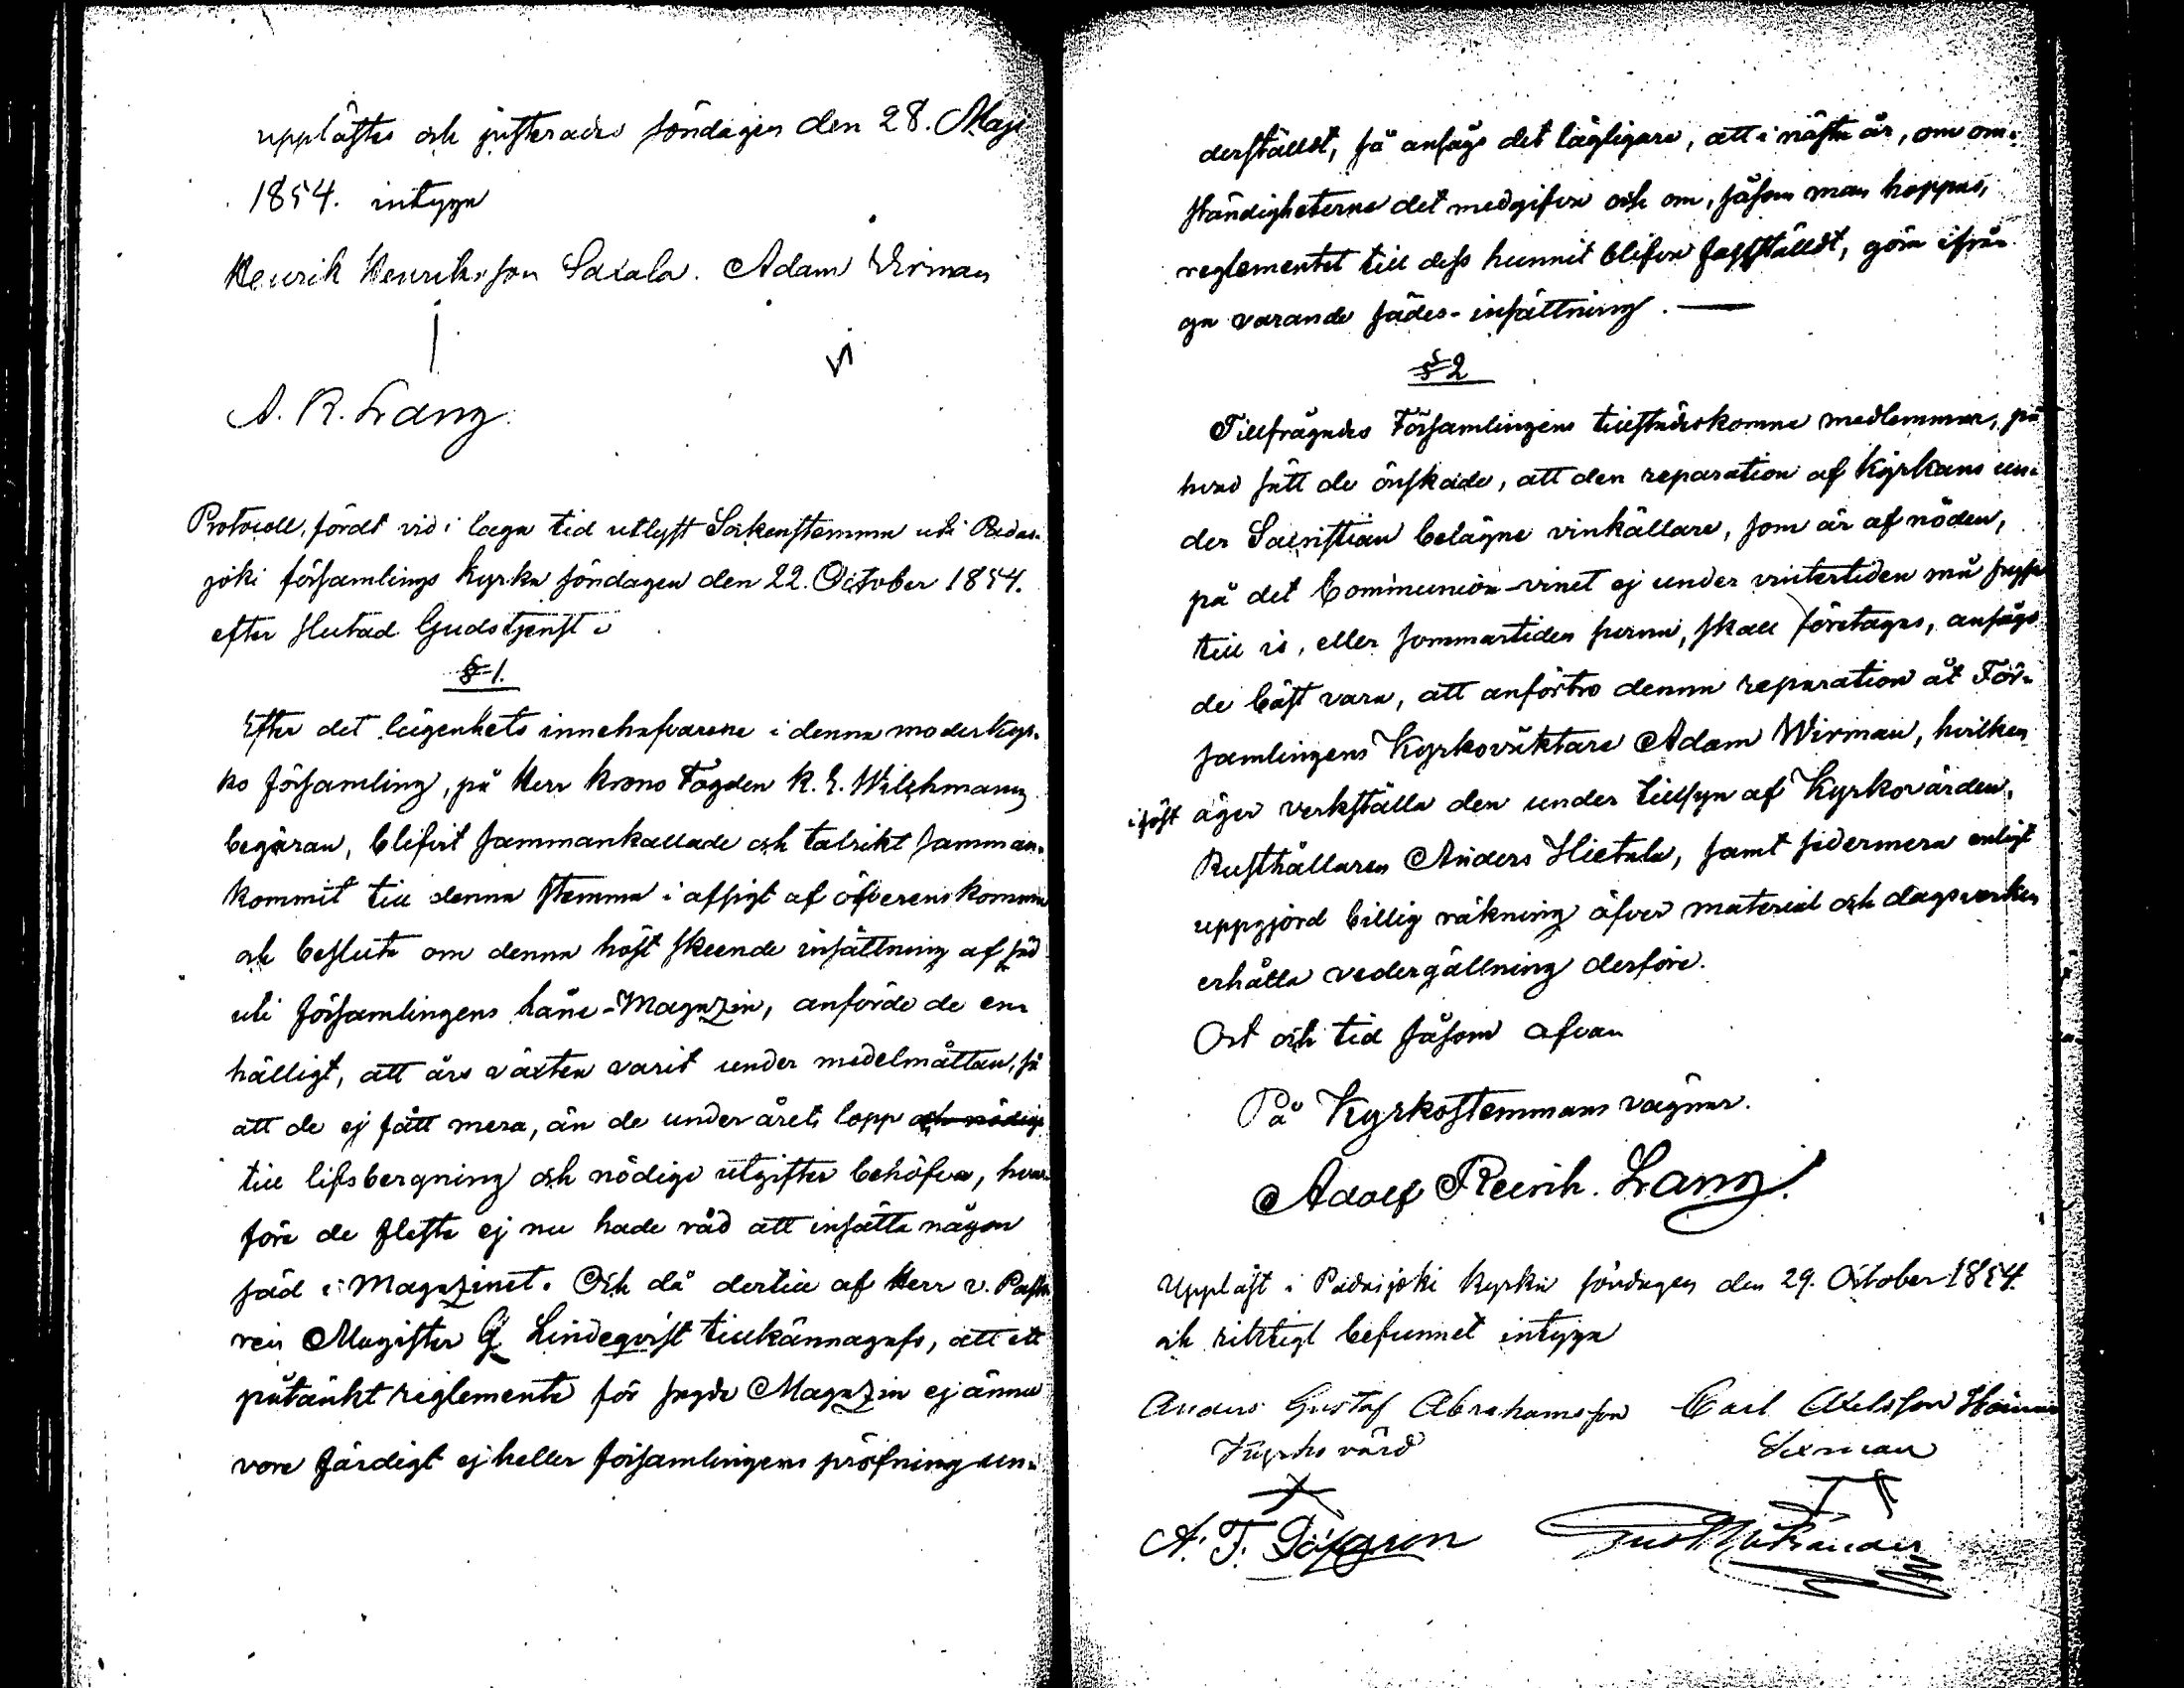 upplästes och justerades söndagen den 28. Maji
1854. intyga
Henrik Henriksson Saxala. Adam Virman
A. R. Lang.
Protocoll, fördt vid i laga tid utlyst Sockenstemma uti Padas-
joki församlings kyrka söndagen den 22. October 1854.
efter slutad Gudstjenst.
§ 1.
Efter det lägenhets innehafvarene i denna moderkyr-
ko församling, på Herr krono Fogden K. E. Wilchmanns
begäran, blifvit sammankallade och talrikt samman-
kommit till denna stemma i afsigt af öfverenskomma
och besluta om denna höst skeende insättning af säd
uti församlingens Låne-Magazin, anförde de en-
hälligt, att års växten varit under medelmåttan, så
att de ej fått mera, än de under årets lopp och nödige
till lifsbergning och nödige utgifter behöfva, hvar-
före de fleste ej nu hade råd att insätta någon
säd i Magazinet. Och då dertill af Herr v. Pasto-
ren Magister G. Lindeqvist tillkännagafs, att ett
påtänkt reglemente för sagde Magazin ej ännu
vore färdigt ej heller församlingens pröfning un-
derställdt, så ansågs det lägligare, att i nästa år, om om-
ständigheterna det medgifva och om, såsom man hoppas,
reglementet till dess hunnit blifva fastställdt, göra ifrå-
ga varande sädes-insättning. —
§ 2
Tillfrågades Församlingens tillstädeskomne medlemmar, på
hvad sätt de önskade, att den reparation af Kyrkans un-
der Sacristian belägne vinkällare, som är af nöden,
på det Communion-vinet ej under vintertiden må frysa
till is, eller sommartiden surna, skall företagas, ansågs
de bäst vara, att anförtro denna reparation åt För-
samlingens Kyrkoväktare Adam Wirman, hvilken
i höst äger verkställa den under tillsyn af Kyrkovärden,
Rusthållaren Anders Hietala, samt sedermera enligt
uppgjord billig räkning öfver material och dagsverken
erhålla vedergällning derföre.
Ort och tid såsom ofvan
På Kyrkostemmans vägnar.
Adolf Reinh. Lang.
Uppläst i Padasjoki kyrka söndagen den 29. October 1854.
och riktigt befunnet intyga
Anders Gustaf Abrahamsson Carl Axelsson
Kyrko värd Sexman
A. F. Löfgren